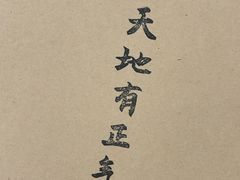 天地有正